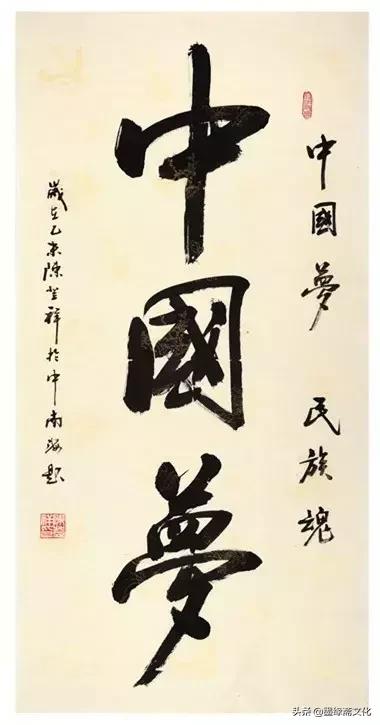 中國夢 民族魂
中國夢
歲在乙未陳祥於中南海題
头条 @墨缘斋文化